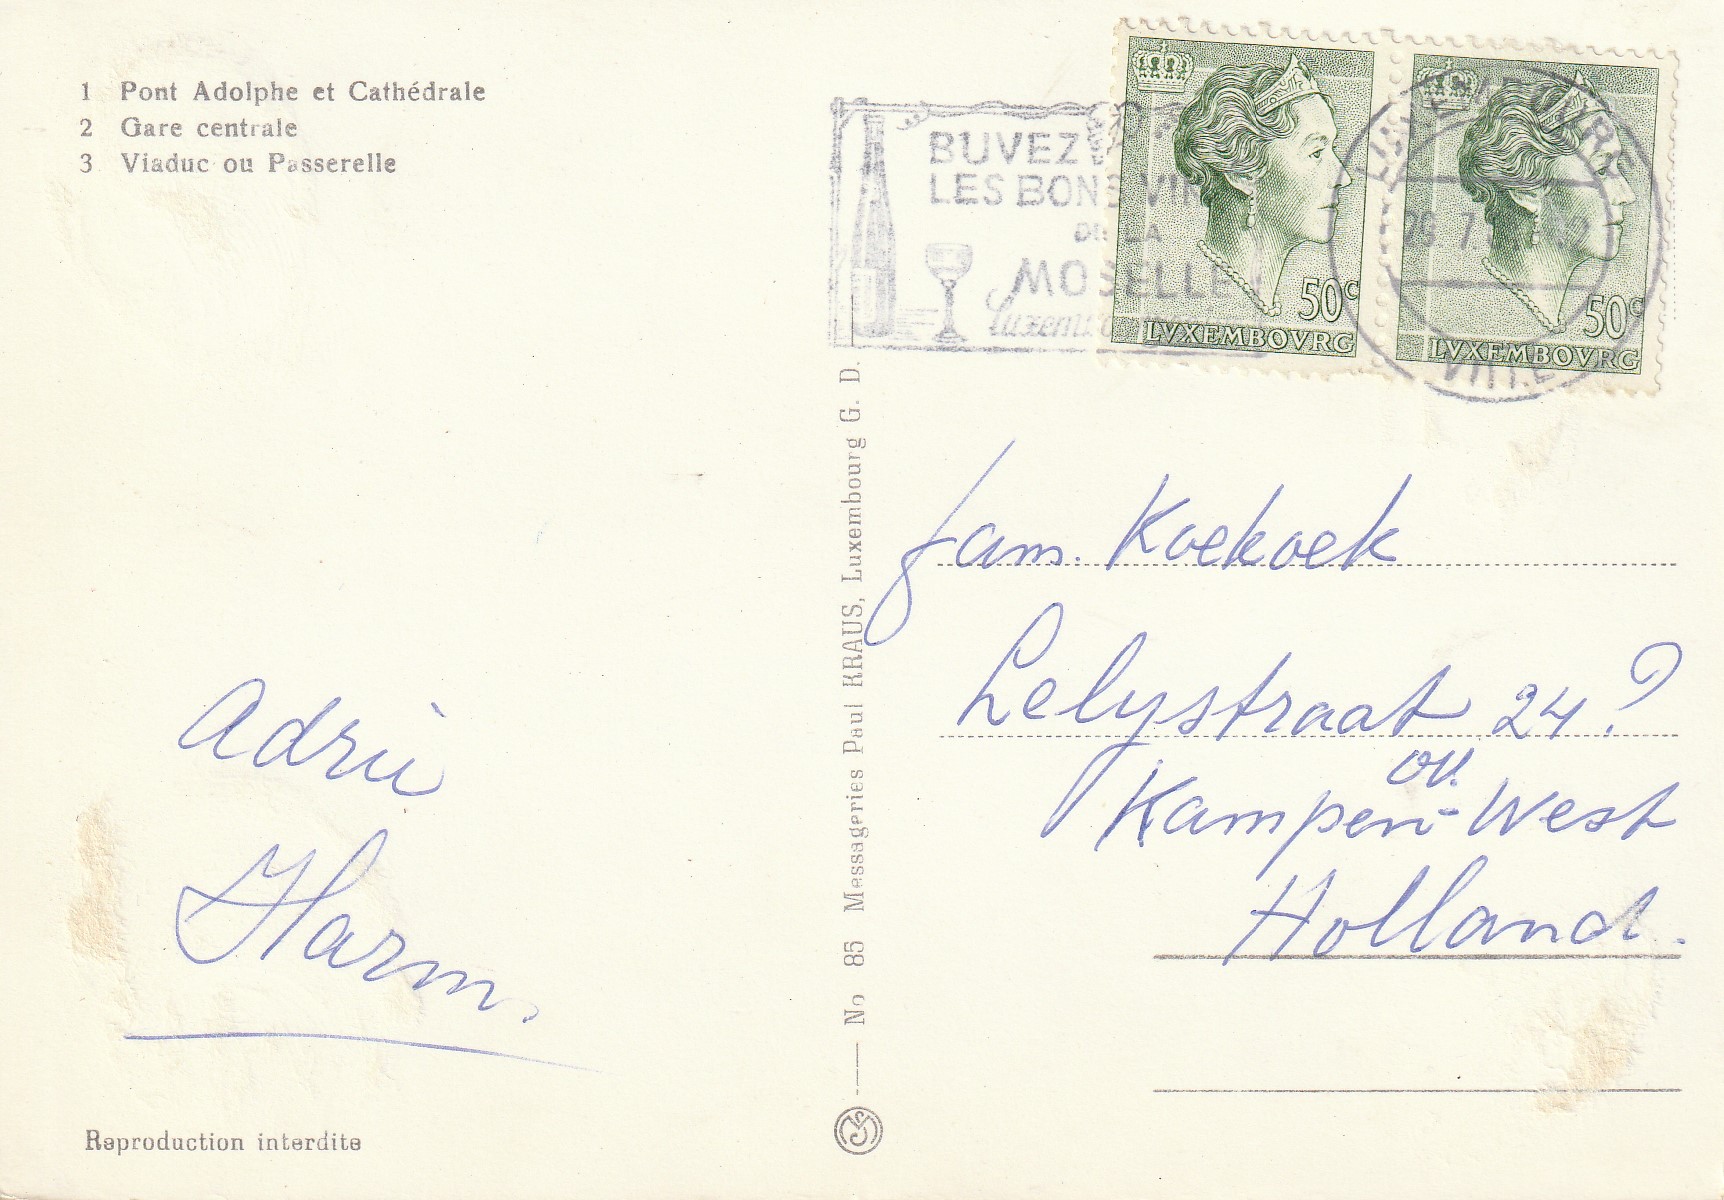 1 Pont Adolphe et Cathédrale
2 Gare centrale
3 Viaduc ou Passerelle
BUVEZ
LES BONS VINS
DE LA
MOSELLE
Luxembourg
50c
LVXEMBOVRG
50c
LVXEMBOVRG
LUXEMBOURG
VILLE
fam. Koekoek
Lelystraat 24?
ov.
Kampen-West
Holland.
Adrie
Harm.
No 85 Messageries Paul KRAUS, Luxembourg G. D.
Reproduction interdite